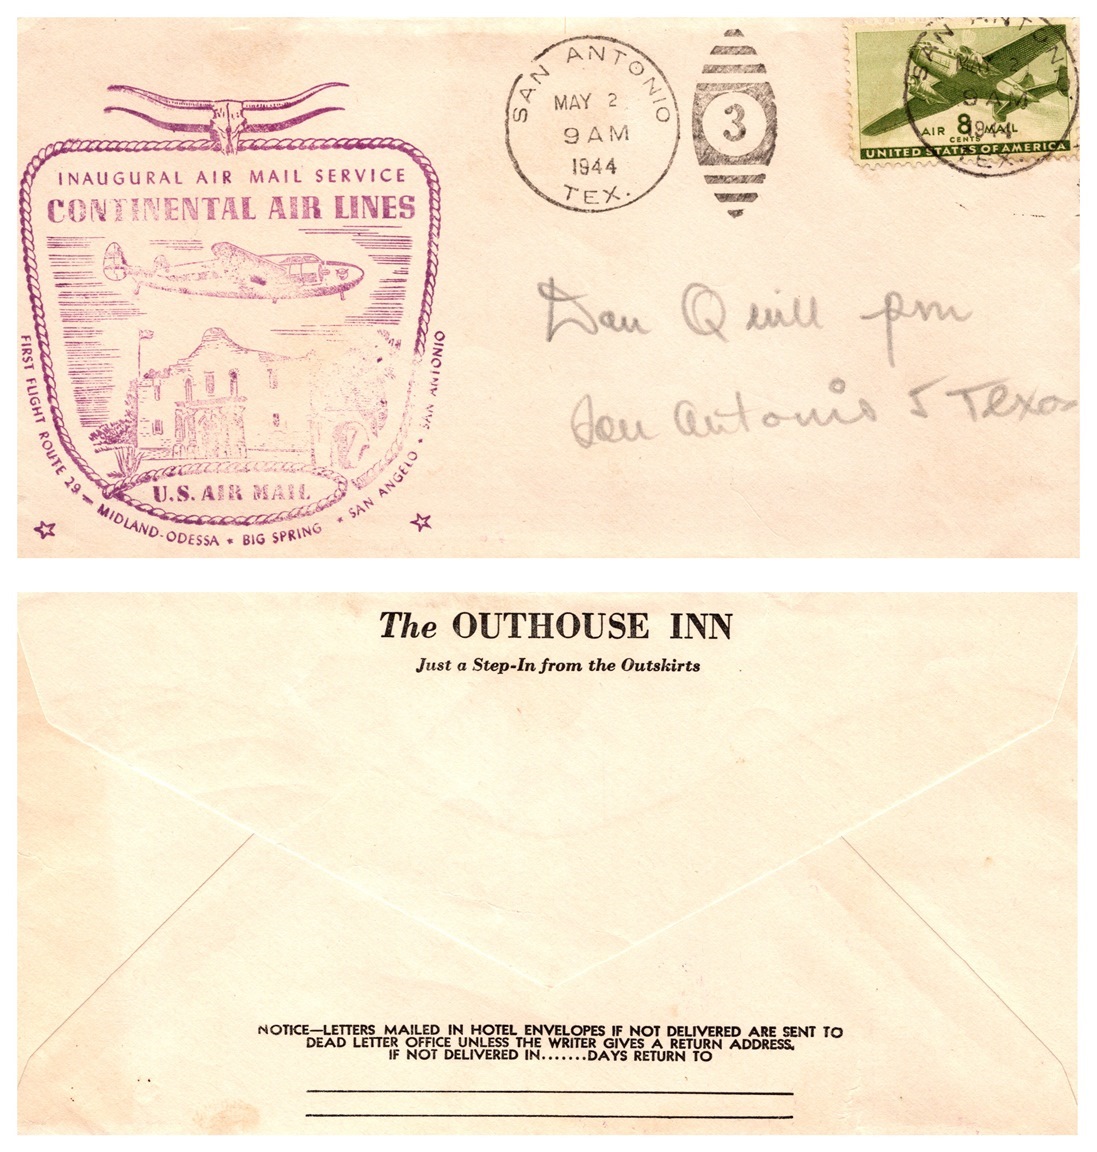 INAUGURAL AIR MAIL SERVICE
CONTINENTAL AIR LINES
FIRST FLIGHT ROUTE 29 — MIDLAND-ODESSA ★ BIG SPRING ★ SAN ANGELO ★ SAN ANTONIO
U.S. AIR MAIL
SAN ANTONIO
MAY 2
9 AM
1944
TEX.
3
SAN ANTONIO
MAY 2
9 AM
1944
TEX.
AIR 8 MAIL
CENTS
UNITED STATES OF AMERICA
Dan Quill pm
San Antonio 5 Texas
The OUTHOUSE INN
Just a Step-In from the Outskirts
NOTICE—LETTERS MAILED IN HOTEL ENVELOPES IF NOT DELIVERED ARE SENT TO
DEAD LETTER OFFICE UNLESS THE WRITER GIVES A RETURN ADDRESS.
IF NOT DELIVERED IN.......DAYS RETURN TO